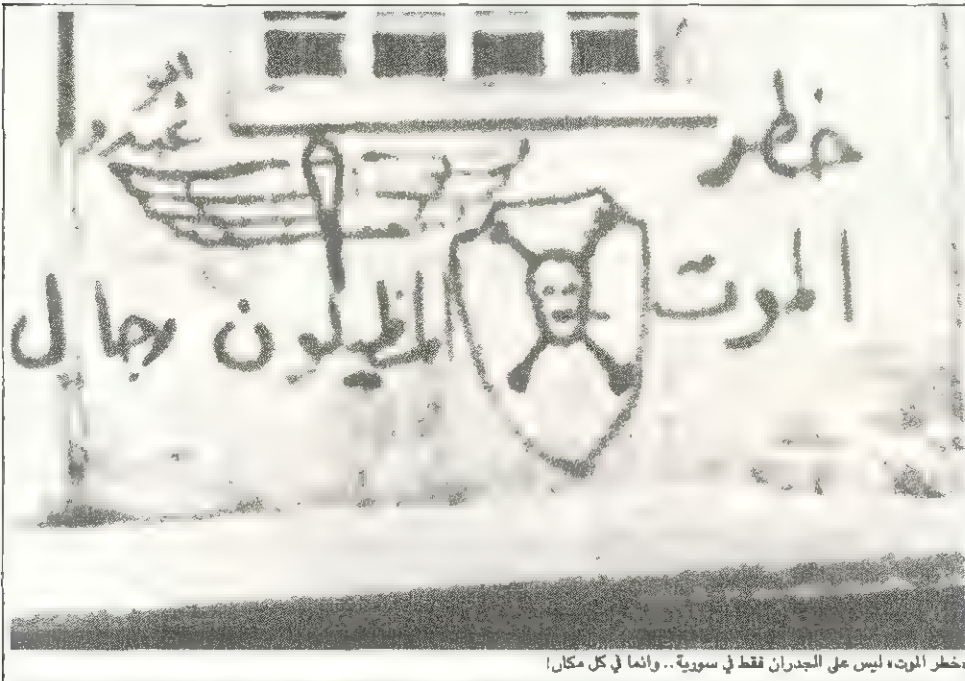 خطر
الموت
المظليون رجال
«خطر الموت» ليس على الجدران فقط في سورية.. وانما في كل مكان!